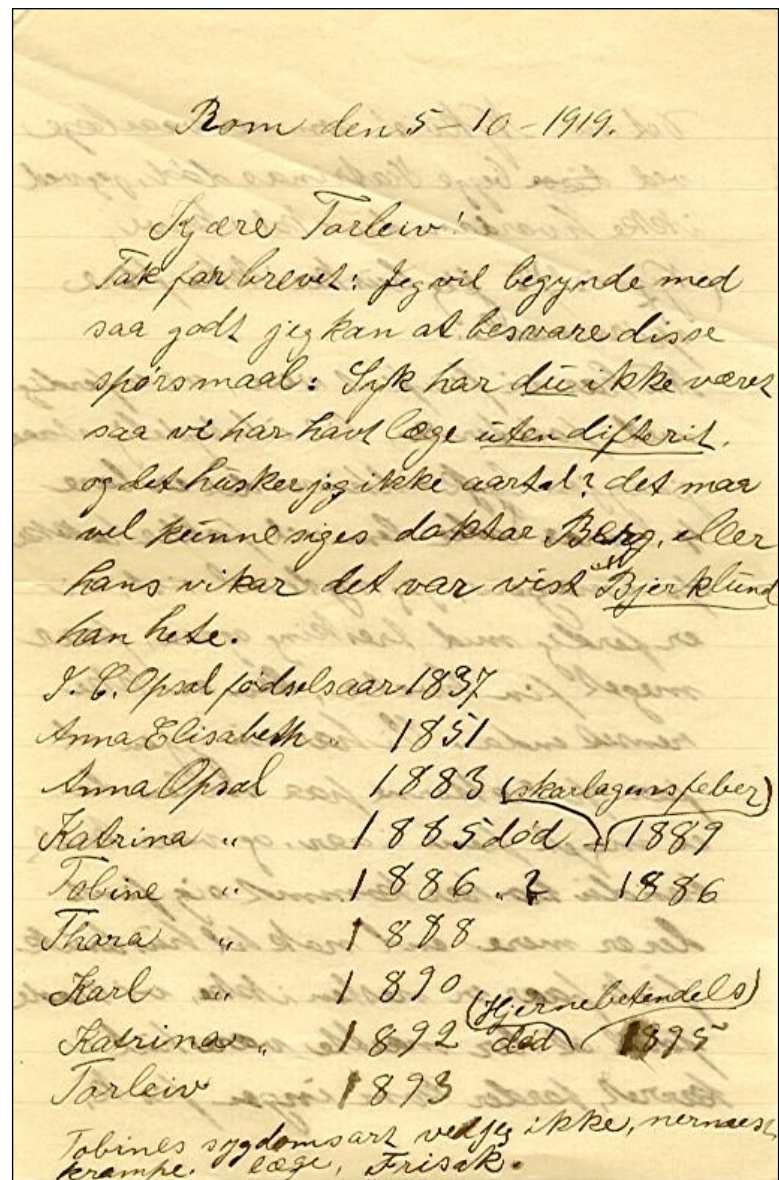 Rom den 5-10-1919.
Kjære Tarleiv!
Tak for brevet: Jeg vil begynde med
saa godt jeg kan at besvare disse
spørsmaal: Syk har du ikke været
saa vi har havt læge uten difterit,
og det husker jeg ikke aartal? det maa
vel kunne siges doktor Berg, eller
hans vikar det var vist Bjerklund
han hete.
Opsal fødselsaar 1837
Anna Elisabeth " 1851
Anna Opsal 1883 (skarlagensfeber)
Katrina " 1885 død 1889
Tobine " 1886 " ? 1886
Thara " 1888
Karl " 1890
(Hjernebetendels)
Katrina " 1892 død 1895
Tarleiv 1893
Tobines sygdomsart ved jeg ikke, nermest
krampe. læge, Frisak.